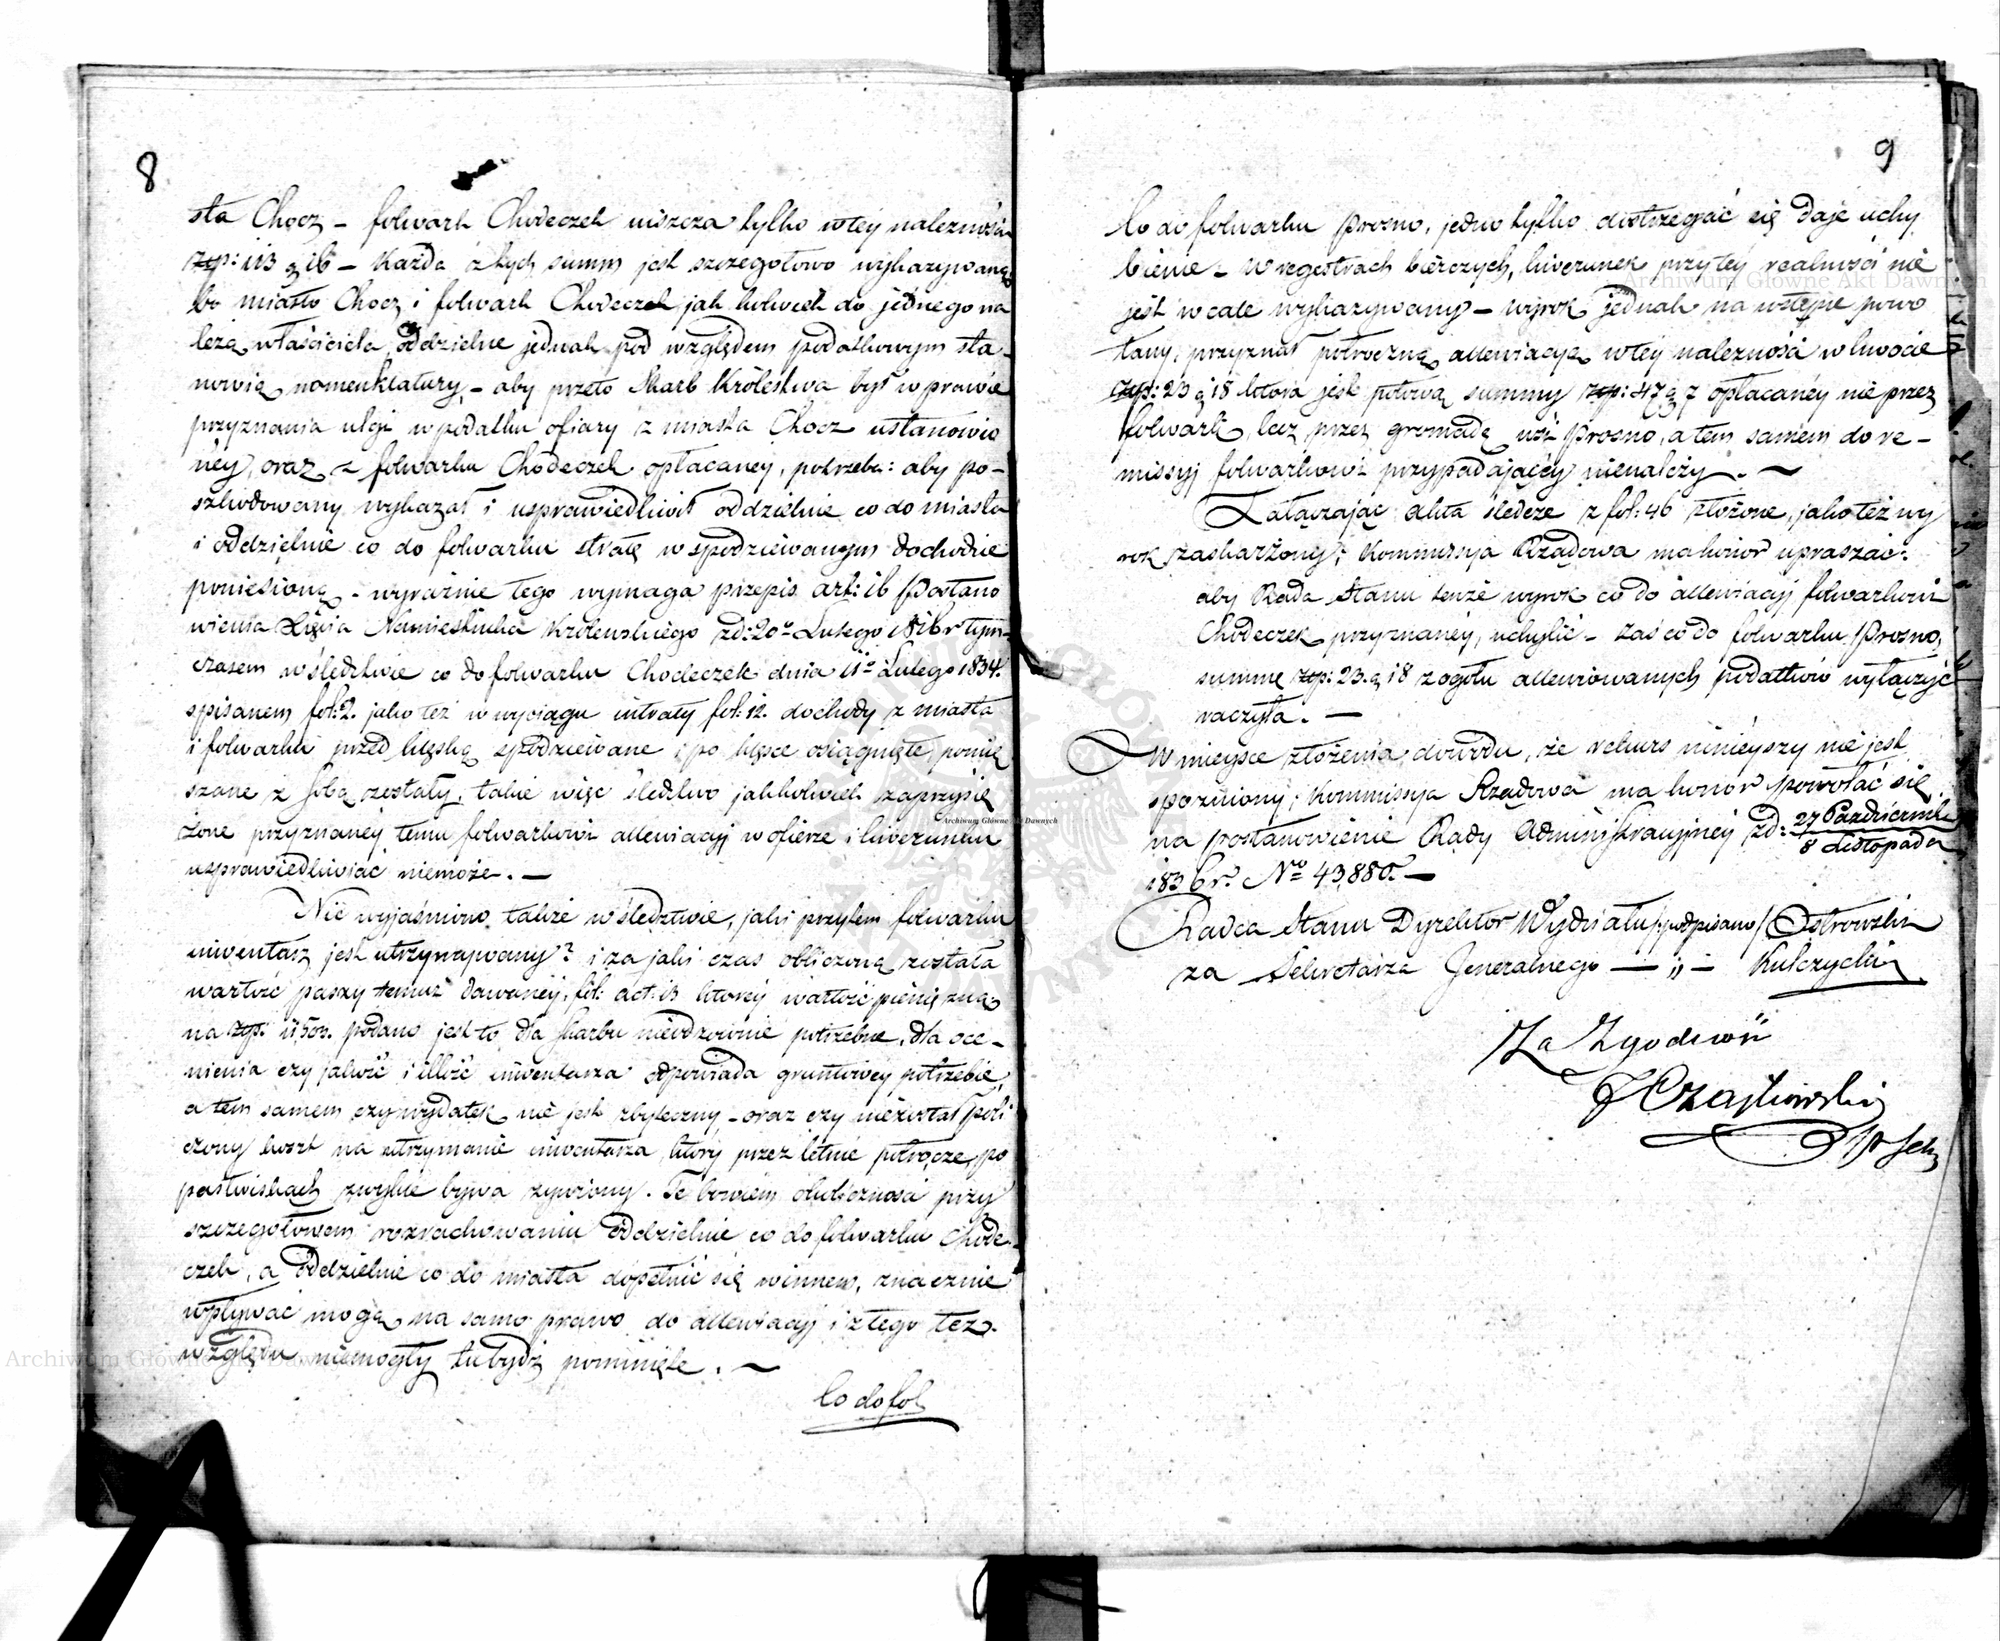 8
sta Chocz – folwark Chodeczek uiszcza tylko w tey należności
zp: 113 g 16 – Każda z tych summ jest szczegółowo wykazywaną
bo miasto Chocz i folwark Chodeczek jakkolwiek do jednego na
leżą właściciela, oddzielne jednak pod względem podatkowym sta-
nowią nomenklatury, – aby przeto Skarb Królestwa był w prawie
przyznania ulgi w podatku ofiary z miasta Chocz ustanowio
ney, oraz z folwarku Chodeczek opłacaney, potrzeba: aby po-
szkodowany wykazał i usprawiedliwił oddzielnie co do miasta
i oddzielnie co do folwarku stratę w spodziewanym dochodzie
poniesioną – wyraźnie tego wymaga przepis art: 16 Postano
wienia Xięcia Namiestnika Królewskiego zd: 20o Lutego 1816 r tym-
czasem w śledztwie co do folwarku Chodeczek dnia 11o Lutego 1834.
spisanem fol: 2. jako też w wyciągu intraty fol: 12. dochody z miasta
i folwarku przed klęską spodziewane i po klęsce osiągnięte, pomie
szane z sobą zostały, takie więc śledztwo jakkolwiek zaprzysię
żone przyznaney temu folwarkowi allewiacyi w ofierze i liwerunku
usprawiedliwiać niemoże. –
Nie wyjaśniono także w śledztwie, jaki przytem folwarku
inwentarz jest utrzymywany? i za jaki czas obliczoną została
wartość paszy temuż dawaney, fol: act: 13 którey wartość pieniężną
na zp: 11503. podano jest to dla skarbu nieodzownie potrzebne, dla oce-
nienia czy jakość i illość inwentarza odpowiada gruntowey potrzebie,
a tem samem czy wydatek nie jest zbyteczny – oraz czy nie został poli
czony koszt na utrzymanie inwentarza, który przez letnie półrocze, po
pastwiskach zwykle bywa żywiony. Te bowiem okoliczności przy
szczegółowem rozrachowaniu oddzielnie co do folwarku Chode-
czek, a oddzielnie co do miasta dopełnić się winnem, znacznie
wpływać mogą na samo prawo do allewiacyi i z tego też
względu niemogły tu bydź pominięte. –
Co do fol
9
Co do folwarku Prosno, jedno tylko dostrzegać się daje uchy
bienie – W regestrach bierczych, liwerunek przy tey realności nie
jest wcale wykazywany – wyrok jednak na wstępie powo
łany, przyznał półroczną allewiacyą w tey należności w kwocie
zp: 23 g 18 która jest połową summy zp: 47 g 7 opłacaney nie przez
folwark, lecz przez gromadę wsi Prosno, a tem samem do re-
missyi folwarkowi przypadającey nienależy. –
Załączając akta śledcze z fol: 46 złożone, jako też wy
rok zaskarżony, Kommissyja Rządowa ma honor upraszać:
aby Rada Stanu tenże wyrok co do allewiacyi folwarkowi
Chodeczek przyznaney, uchylić – zaś co do folwarku Prosno,
summę zp: 23. g 18 z ogółu allewiowanych podatków wyłączyć
raczyła. –
W miejsce złożenia dowodu, że rekurs ninieyszy nie jest
spóźniony; Kommissyja Rządowa ma honor powołać się
na postanowienie Rady Administracyjney zd: 27 Października
8 Listopada
1836 r. No 43,880. –
Radca Stanu Dyrektor Wydziału /:podpisano/ Ostrowski
za Sekretarza Jeneralnego – „ – Kulczycki
Za Zgodność
J Czajkowski
P Sek